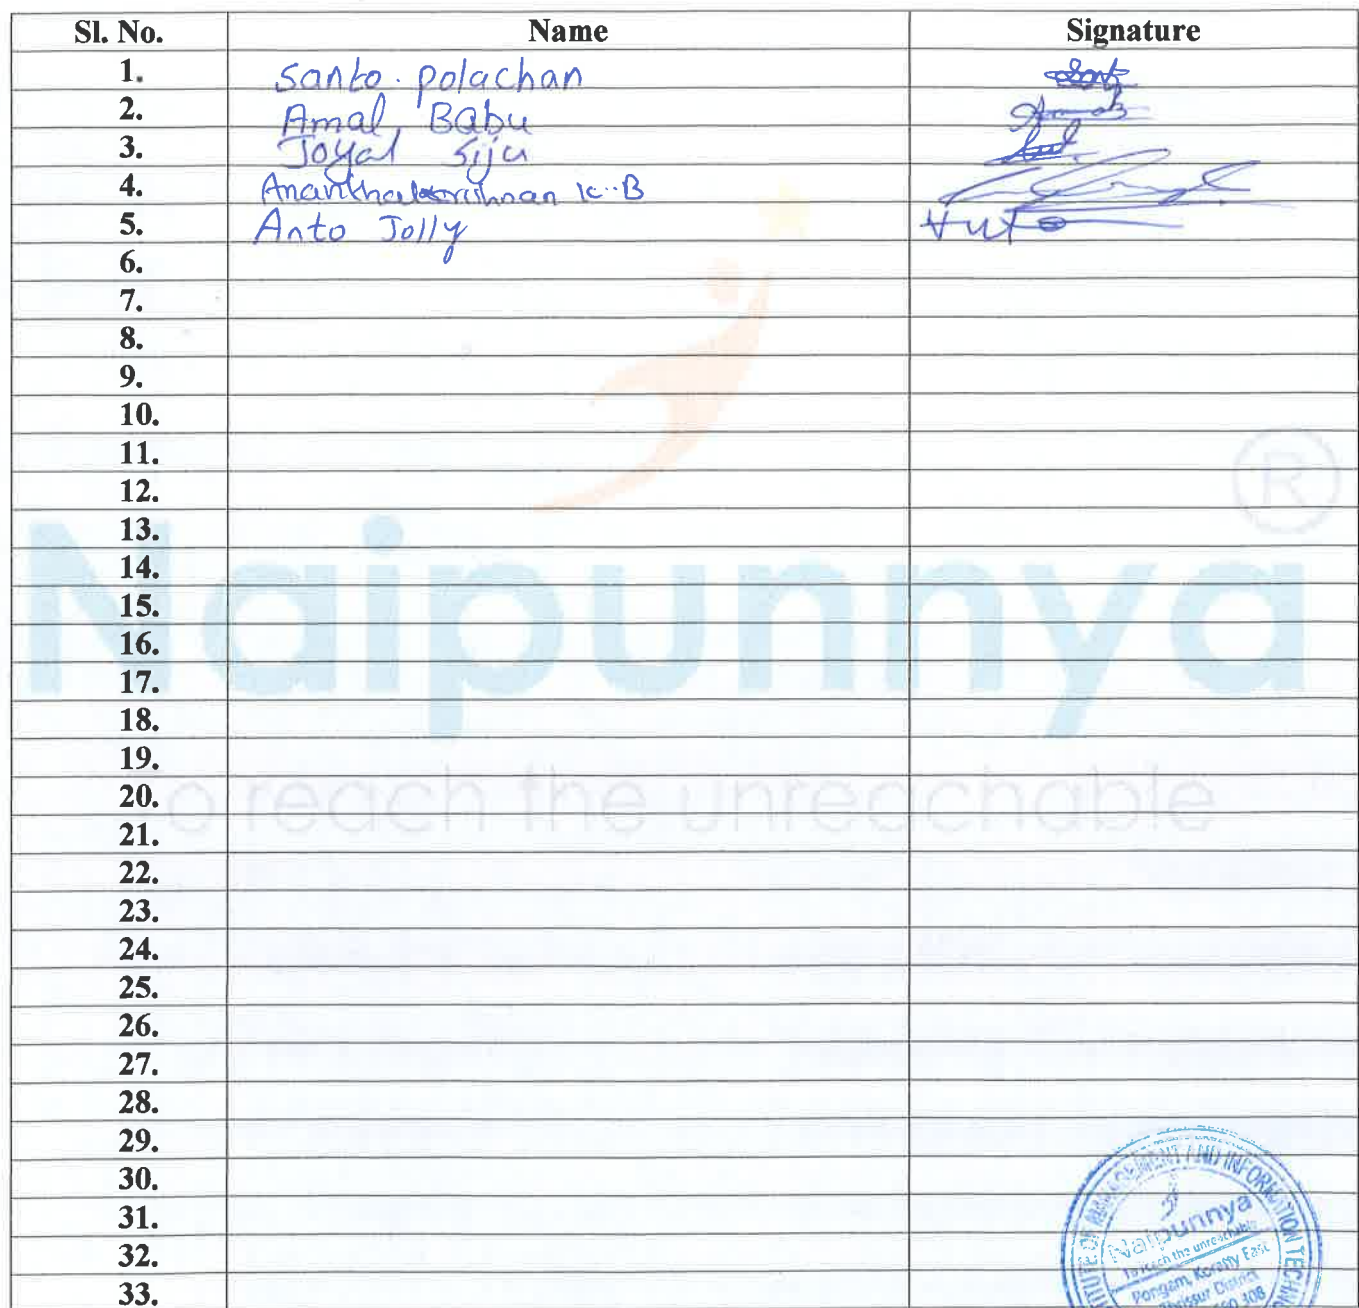 Sl. No. Name Signature
1. Santo. polachan
2. Amal Babu
3. Joyal Siju
4. Ananthakrishnan K.B
5. Anto Jolly
6.
7.
8.
9.
10.
11.
12.
13.
14.
15.
16.
17.
18.
19.
20.
21.
22.
23.
24.
25.
26.
27.
28.
29.
30.
31.
32.
33.
Naipunnya
®
To reach the unreachable
OF MANAGEMENT AND INFORMATION
Naipunnya
To reach the unreachable
Pongam, Koratty East
Thrissur District
308